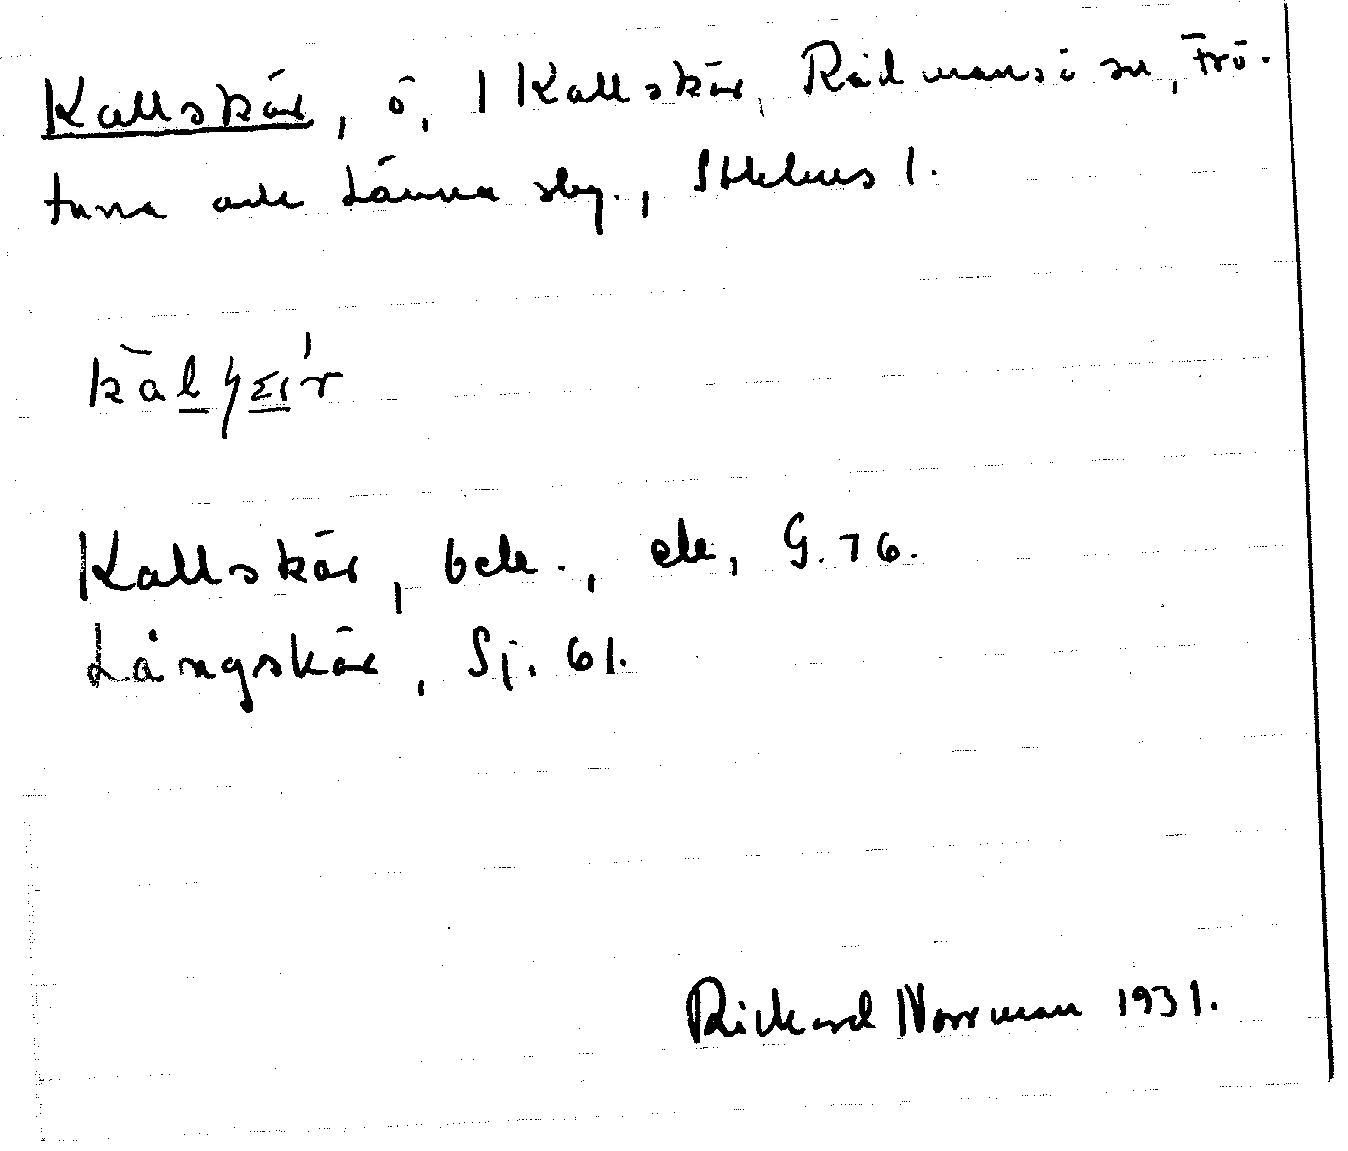 Kallskär, ö, 1 Kallskär, Rådmansö sn, Frö-
tuna och Länna sbg., Sthlms l.
Kallskär, beb., ek, G. 76.
Långskär, Sj. 61.
Rickard Norrman 1931.